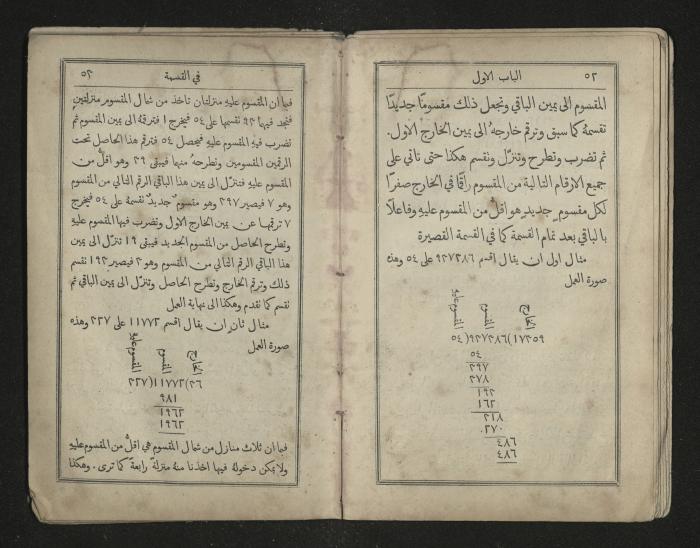 ٥٢ الباب الاول
المقسوم الى يمين الباقي وتجعل ذلك مقسومًا جديدًا
تقسمهُ كما سبق وترقم خارجهُ الى يمين الخارج الاول.
ثم تضرب وتطرح وتنزّل وتقسم هكذا حتى تاتي على
جميع الارقام التالية من المقسوم راقمًا في الخارج صفرًا
لكل مقسومٍ جديدٍ هو اقلُّ من المقسوم عليهِ وفاعلًا
بالباقي بعد تمام القسمة كما في القسمة القصيرة
مثال اول ان يقال اقسم ٩٣٧٣٨٦ على ٥٤ وهذه
صورة العمل
الخارج المقسوم المقسوم عليهِ
١٧٣٥٩)٩٣٧٣٨٦(٥٤
٥٤
٣٩٧
٣٧٨
١٩٣
١٦٢
٣١٨
٢٧٠
٤٨٦
٤٨٦
في القسمة ٥٣
فبما ان المقسوم عليهِ منزلتان تاخذ من شمال المقسوم منزلتين
فتجد فيها ٩٣ نقسمها على ٥٤ فيخرج ١ فترقمهُ الى يمين المقسوم ثم
تضرب فيهِ المقسوم عليهِ فيحصل ٥٤ فترقم هذا الحاصل تحت
الرقمين المقسومين وتطرحهُ منها فيبقى ٣٩ وهو اقلُّ من
المقسوم عليهِ فتنزّل الى يمين هذا الباقي الرقم التالي من المقسوم
وهو ٧ فيصير ٣٩٧ وهو مقسومٌ جديدٌ تقسمهُ على ٥٤ فيخرج
٧ ترقمها عن يمين الخارج الاول وتضرب فيها المقسوم عليهِ
وتطرح الحاصل من المقسوم الجديد فيبقى ١٩ تنزّل الى يمين
هذا الباقي الرقم التالي من المقسوم وهو ٣ فيصير ١٩٣ تقسم
ذلك وترقم الخارج وتطرح الحاصل وتنزّل الى يمين الباقي ثم
تقسم كما تقدم وهكذا الى نهاية العمل
مثال ثانٍ ان يقال اقسم ١١٧٧٢ على ٣٢٧ وهذه
صورة العمل
الخارج المقسوم المقسوم عليهِ
٣٦)١١٧٧٢(٣٢٧
٩٨١
١٩٦٢
١٩٦٢
فبما ان ثلاث منازل من شمال المقسوم هي اقلُّ من المقسوم عليهِ
ولا يمكن دخولهُ فيها اخذنا منهُ منزلةً رابعةً كما ترى. وهكذا